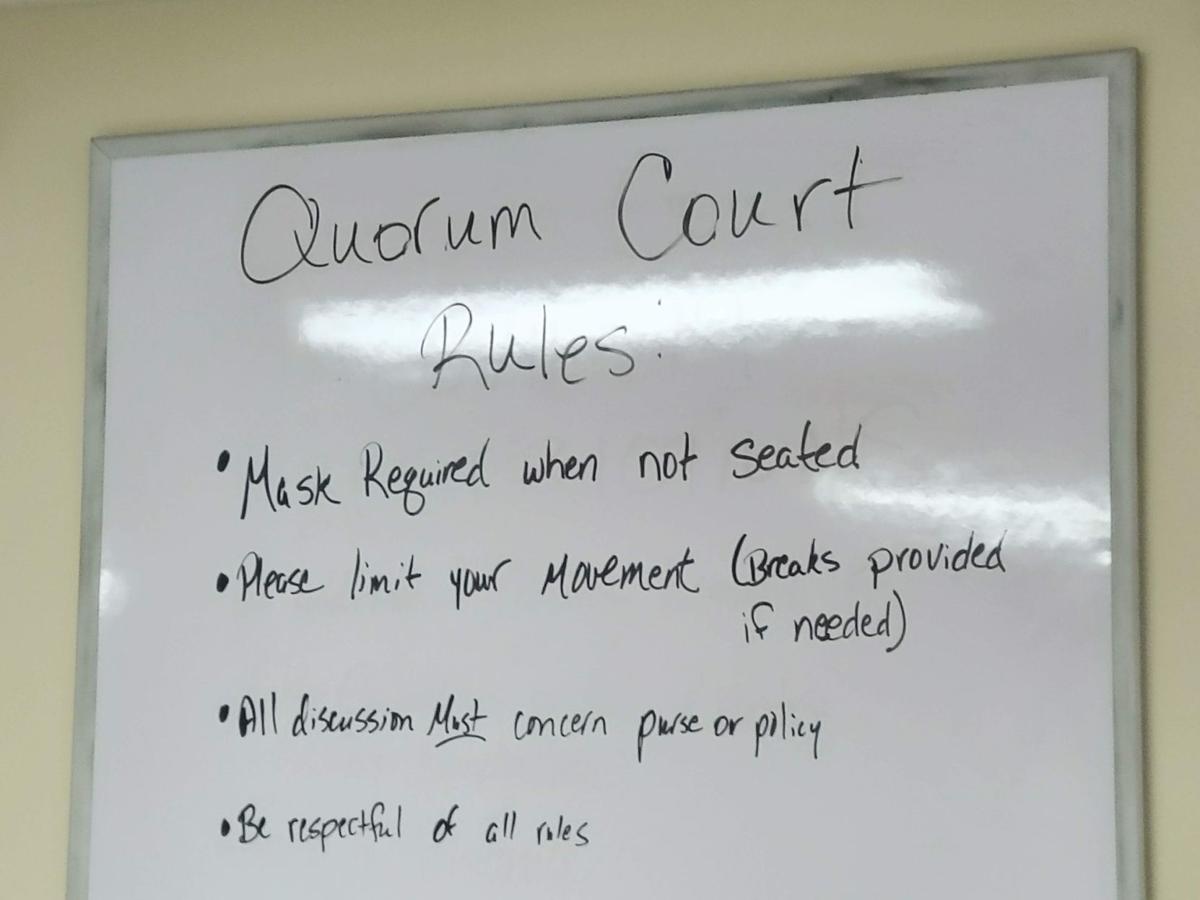 Quorum Court
Rules:
• Mask Required when not seated
• Please limit your Movement (Breaks provided
if needed)
• All discussion Must concern purse or policy
• Be respectful of all rules